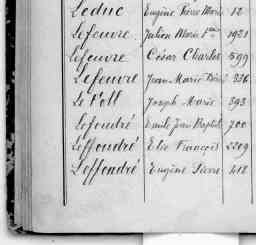 Leduc Eugène Pierre Marie 12
Lefeuvre Julien Marie Fcois 1921
Lefeuvre César Charles 599
Lefeuvre Jean Marie 336
Le Foll Joseph Marie 393
Lefondré Emile Jean Baptiste 700
Leffondré Elie François 2209
Leffondré Eugène Pierre 418